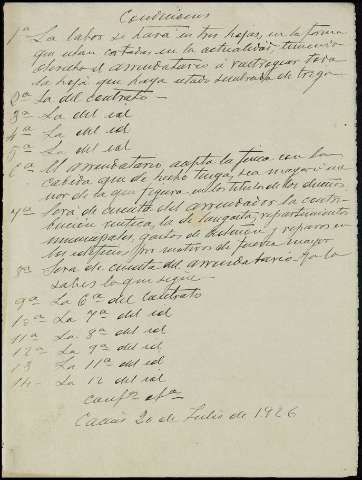 Condiciones
1ª La labor se hará en tres hojas, en la forma
que estan cortadas en la actualidad, teniendo
derecho el arrendatario á rastrogear toda
la hoja que haya estado sembrada de trigo.
2ª La del contrato.
3ª La del id
4ª La del id
5ª La del id
6ª El arrendatario, acepta la finca con la
cabida que de hecho tenga, sea mayor ó me
nor de la que figura en los titulos de los dueños.
7ª Será de cuenta del arrendador la contri-
bución rustica, la de langosta, repartimientos
municipales, gastos de y reparos en
los edificios por motivos de fuerza mayor
8ª Sera de cuenta del arrendatario
sabes lo que sigue.
9ª La 6ª del contrato
10ª La 7ª del id
11ª La 8ª del id
12ª La 9ª del id
13 La 11ª del id
14 La 12 del id
Cáceres 20 de Julio de 1926